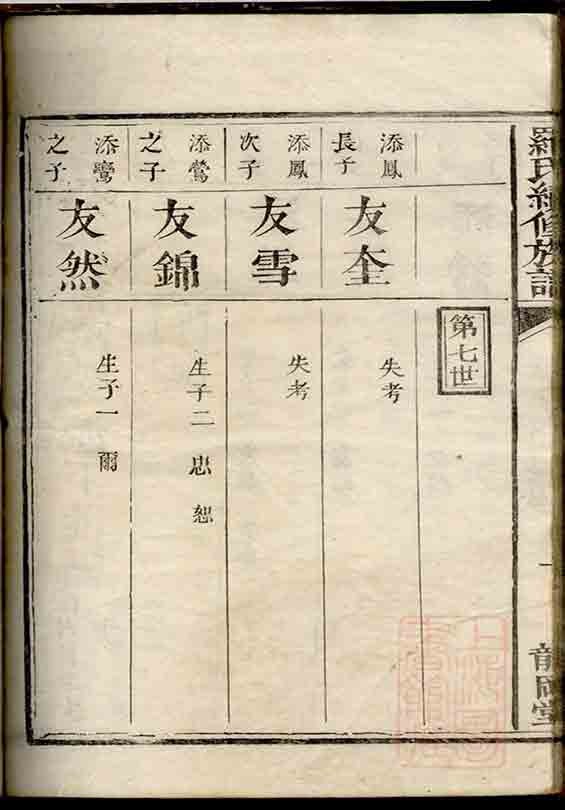 羅氏續修族譜
龍岡堂
第七世
添鳳
長子
友奎
失考
添鳳
次子
友雪
失考
添鶯
之子
友錦
生子二 忠 恕
添鸞
之子
友然
生子一 爾